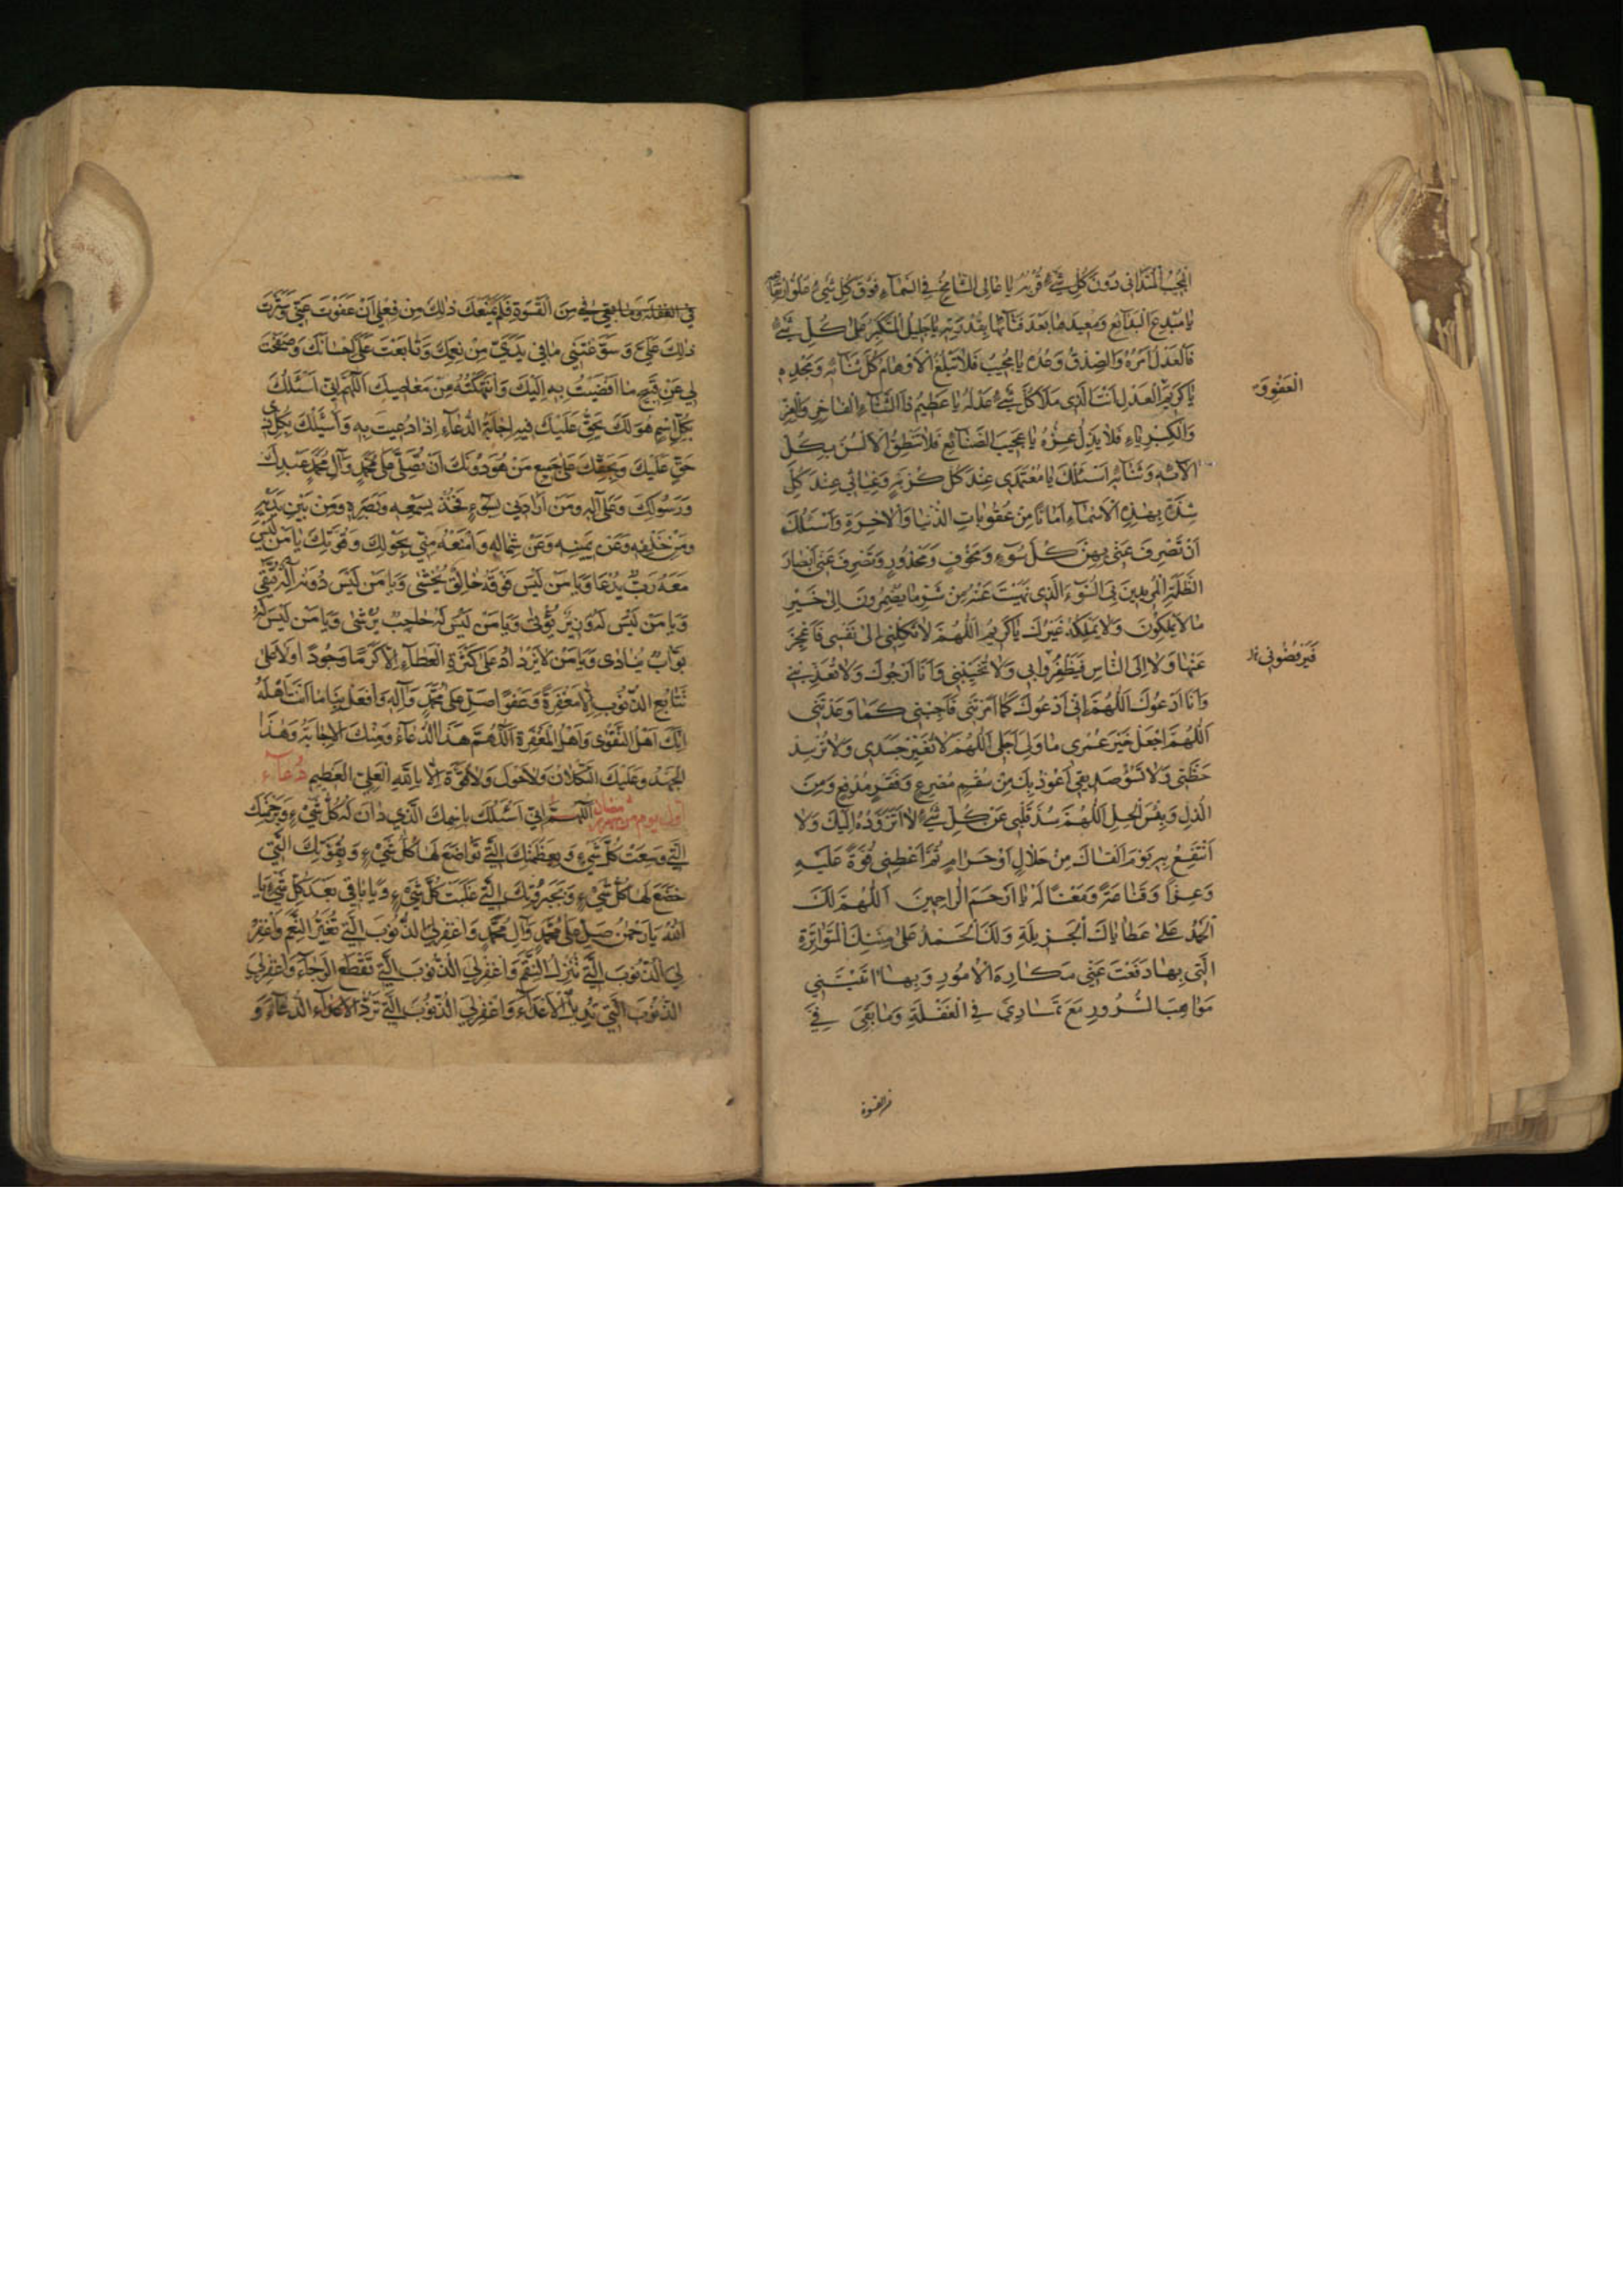 الْمُجِيبُ الْمُتَدَانِي دُونَ كُلِّ شَيْءٍ قُرْبُهُ يَا عَالِي الشَّامِخُ فِي السَّمَاءِ فَوْقَ كُلِّ شَيْءٍ عُلُوُّ ارْتِفَاعِهِ
يَا مُبْدِعَ الْبَدَائِعِ وَمُعِيدَهَا بَعْدَ فَنَائِهَا بِقُدْرَتِهِ يَا جَلِيلُ الْمُتَكَبِّرُ عَلَى كُلِّ شَيْءٍ
فَالْعَدْلُ أَمْرُهُ وَالصِّدْقُ وَعْدُهُ يَا مَجِيدُ فَلَا تَبْلُغُ الْأَوْهَامُ كُلَّ ثَنَائِهِ وَمَجْدِهِ
يَا كَرِيمَ الْعَدْلِ أَنْتَ الَّذِي مَلَأَ كُلَّ شَيْءٍ عَدْلُهُ يَا عَظِيمُ ذَا الثَّنَاءِ الْفَاخِرِ وَالْعِزِّ
وَالْكِبْرِيَاءِ فَلَا يَذِلُّ عِزُّهُ يَا عَجِيبَ الصَّنَائِعِ فَلَا تَنْطِقُ الْأَلْسُنُ بِكُلِّ
آلَائِهِ وَثَنَائِهِ أَسْئَلُكَ يَا مُعْتَمَدِي عِنْدَ كُلِّ كُرْبَةٍ وَغِيَاثِي عِنْدَ كُلِّ
شِدَّةٍ بِهَذِهِ الْأَسْمَاءِ أَمَانًا مِنْ عُقُوبَاتِ الدُّنْيَا وَالْآخِرَةِ وَأَسْئَلُكَ
أَنْ تَصْرِفَ عَنِّي بِهِنَّ كُلَّ سُوءٍ وَمَخُوفٍ وَمَحْذُورٍ وَتَصْرِفَ عَنِّي أَبْصَارَ
الظَّلَمَةِ الْمُرِيدِينَ بِيَ السُّوءَ الَّذِي نَهَيْتَ عَنْهُ مِنْ شَرِّ مَا يُضْمِرُونَ إِلَى خَيْرِ
مَا لَا يَمْلِكُونَ وَلَا يَمْلِكُهُ غَيْرُكَ يَا كَرِيمُ اللَّهُمَّ لَا تَكِلْنِي إِلَى نَفْسِي فَأَعْجِزَ
عَنْهَا وَلَا إِلَى النَّاسِ فَيَظْفَرُوا بِي وَلَا تُخَيِّبْنِي وَأَنَا أَرْجُوكَ وَلَا تُعَذِّبْنِي
وَأَنَا أَدْعُوكَ اللَّهُمَّ إِنِّي أَدْعُوكَ كَمَا أَمَرْتَنِي فَأَجِبْنِي كَمَا وَعَدْتَنِي
اللَّهُمَّ اجْعَلْ خَيْرَ عُمْرِي مَا وَلِيَ أَجَلِي اللَّهُمَّ لَا تُغَيِّرْ جَسَدِي وَلَا تُرْسِلْ
حَظِّي وَلَا تَسُؤْ صَدِيقِي أَعُوذُ بِكَ مِنْ سُقْمٍ مُصْرِعٍ وَفَقْرٍ مُدْقِعٍ وَمِنَ
الذُّلِّ وَبِئْسَ الْخِلِّ اللَّهُمَّ سُدَّ قَلْبِي عَنْ كُلِّ شَيْءٍ لَا أَتَزَوَّدُهُ إِلَيْكَ وَلَا
أَنْتَفِعُ بِهِ يَوْمَ أَلْقَاكَ مِنْ حَلَالٍ أَوْ حَرَامٍ ثُمَّ أَعْطِنِي قُوَّةً عَلَيْهِ
وَعِزًّا وَقَنَاعَةً وَمَقْتًا لَهُ يَا أَرْحَمَ الرَّاحِمِينَ اللَّهُمَّ لَكَ
الْحَمْدُ عَلَى عَطَايَاكَ الْجَزِيلَةِ وَلَكَ الْحَمْدُ عَلَى مِنَنِكَ الْمُتَوَاتِرَةِ
الَّتِي بِهَا دَفَعْتَ عَنِّي مَكَارِهَ الْأُمُورِ وَبِهَا آتَيْتَنِي
مَوَاهِبَ السُّرُورِ مَعَ تَمَادِيَّ فِي الْغَفْلَةِ وَمَا بَقِيَ فِيَّ
من القسوة
فِي الْغَفْلَةِ وَمَا بَقِيَ فِيَّ مِنَ الْقَسْوَةِ فَلَمْ يَمْنَعْكَ ذَلِكَ مِنْ فِعْلِي أَنْ عَفَوْتَ عَنِّي وَسَتَرْتَ
ذَلِكَ عَلَيَّ وَسَوَّغْتَنِي مَا فِي يَدَيَّ مِنْ نِعَمِكَ وَتَابَعْتَ عَلَيَّ إِحْسَانَكَ وَصَفَحْتَ
لِي عَنْ قَبِيحِ مَا أَفْضَيْتُ بِهِ إِلَيْكَ وَانْتَهَكْتُهُ مِنْ مَعَاصِيكَ اللَّهُمَّ إِنِّي أَسْئَلُكَ
بِكُلِّ اسْمٍ هُوَ لَكَ يَحِقُّ عَلَيْكَ فِيهِ إِجَابَةُ الدُّعَاءِ إِذَا دُعِيتَ بِهِ وَأَسْئَلُكَ بِكُلِّ ذِي
حَقٍّ عَلَيْكَ وَبِحَقِّكَ عَلَى جَمِيعِ مَنْ هُوَ دُونَكَ أَنْ تُصَلِّيَ عَلَى مُحَمَّدٍ وَآلِ مُحَمَّدٍ عَبْدِكَ
وَرَسُولِكَ وَعَلَى آلِهِ وَمَنْ أَرَادَنِي بِسُوءٍ فَخُذْ بِسَمْعِهِ وَبَصَرِهِ وَمِنْ بَيْنِ يَدَيْهِ
وَمِنْ خَلْفِهِ وَعَنْ يَمِينِهِ وَعَنْ شِمَالِهِ وَامْنَعْهُ مِنِّي بِحَوْلِكَ وَقُوَّتِكَ يَا مَنْ لَيْسَ
مَعَهُ رَبٌّ يُدْعَا وَيَا مَنْ لَيْسَ فَوْقَهُ خَالِقٌ يُخْشَى وَيَا مَنْ لَيْسَ دُونَهُ إِلَهٌ يُتَّقَى
وَيَا مَنْ لَيْسَ لَهُ وَزِيرٌ يُؤْتَى وَيَا مَنْ لَيْسَ لَهُ حَاجِبٌ يُرْشَى وَيَا مَنْ لَيْسَ لَهُ
بَوَّابٌ يُنَادَى وَيَا مَنْ لَا يَزْدَادُ عَلَى كَثْرَةِ الْعَطَاءِ إِلَّا كَرَمًا وَجُودًا وَلَا عَلَى
تَتَابُعِ الذُّنُوبِ إِلَّا مَغْفِرَةً وَعَفْوًا صَلِّ عَلَى مُحَمَّدٍ وَآلِهِ وَافْعَلْ بِنَا مَا أَنْتَ أَهْلُهُ
إِنَّكَ أَهْلُ التَّقْوَى وَأَهْلُ الْمَغْفِرَةِ اللَّهُمَّ هَذَا الدُّعَاءُ وَمِنْكَ الْإِجَابَةُ وَهَذَا
الْجُهْدُ وَعَلَيْكَ التُّكْلَانُ وَلَا حَوْلَ وَلَا قُوَّةَ إِلَّا بِاللَّهِ الْعَلِيِّ الْعَظِيمِ دُعَاءُ
أول يوم من شهر رمضان اللَّهُمَّ إِنِّي أَسْئَلُكَ بِاسْمِكَ الَّذِي دَانَ لَهُ كُلُّ شَيْءٍ وَبِرَحْمَتِكَ
الَّتِي وَسِعَتْ كُلَّ شَيْءٍ وَبِعَظَمَتِكَ الَّتِي تَوَاضَعَ لَهَا كُلُّ شَيْءٍ وَبِقُوَّتِكَ الَّتِي
خَضَعَ لَهَا كُلُّ شَيْءٍ وَبِجَبَرُوتِكَ الَّتِي غَلَبَتْ كُلَّ شَيْءٍ وَيَا بَاقِي بَعْدَ كُلِّ شَيْءٍ يَا
اللَّهُ يَا رَحْمَنُ صَلِّ عَلَى مُحَمَّدٍ وَآلِ مُحَمَّدٍ وَاغْفِرْ لِيَ الذُّنُوبَ الَّتِي تُغَيِّرُ النِّعَمَ وَاغْفِرْ
لِيَ الذُّنُوبَ الَّتِي تُنْزِلُ النِّقَمَ وَاغْفِرْ لِيَ الذُّنُوبَ الَّتِي تَقْطَعُ الرَّجَاءَ وَاغْفِرْ لِيَ
الذُّنُوبَ الَّتِي تُدِيلُ الْأَعْدَاءَ وَاغْفِرْ لِيَ الذُّنُوبَ الَّتِي تَرُدُّ الدُّعَاءَ وَ